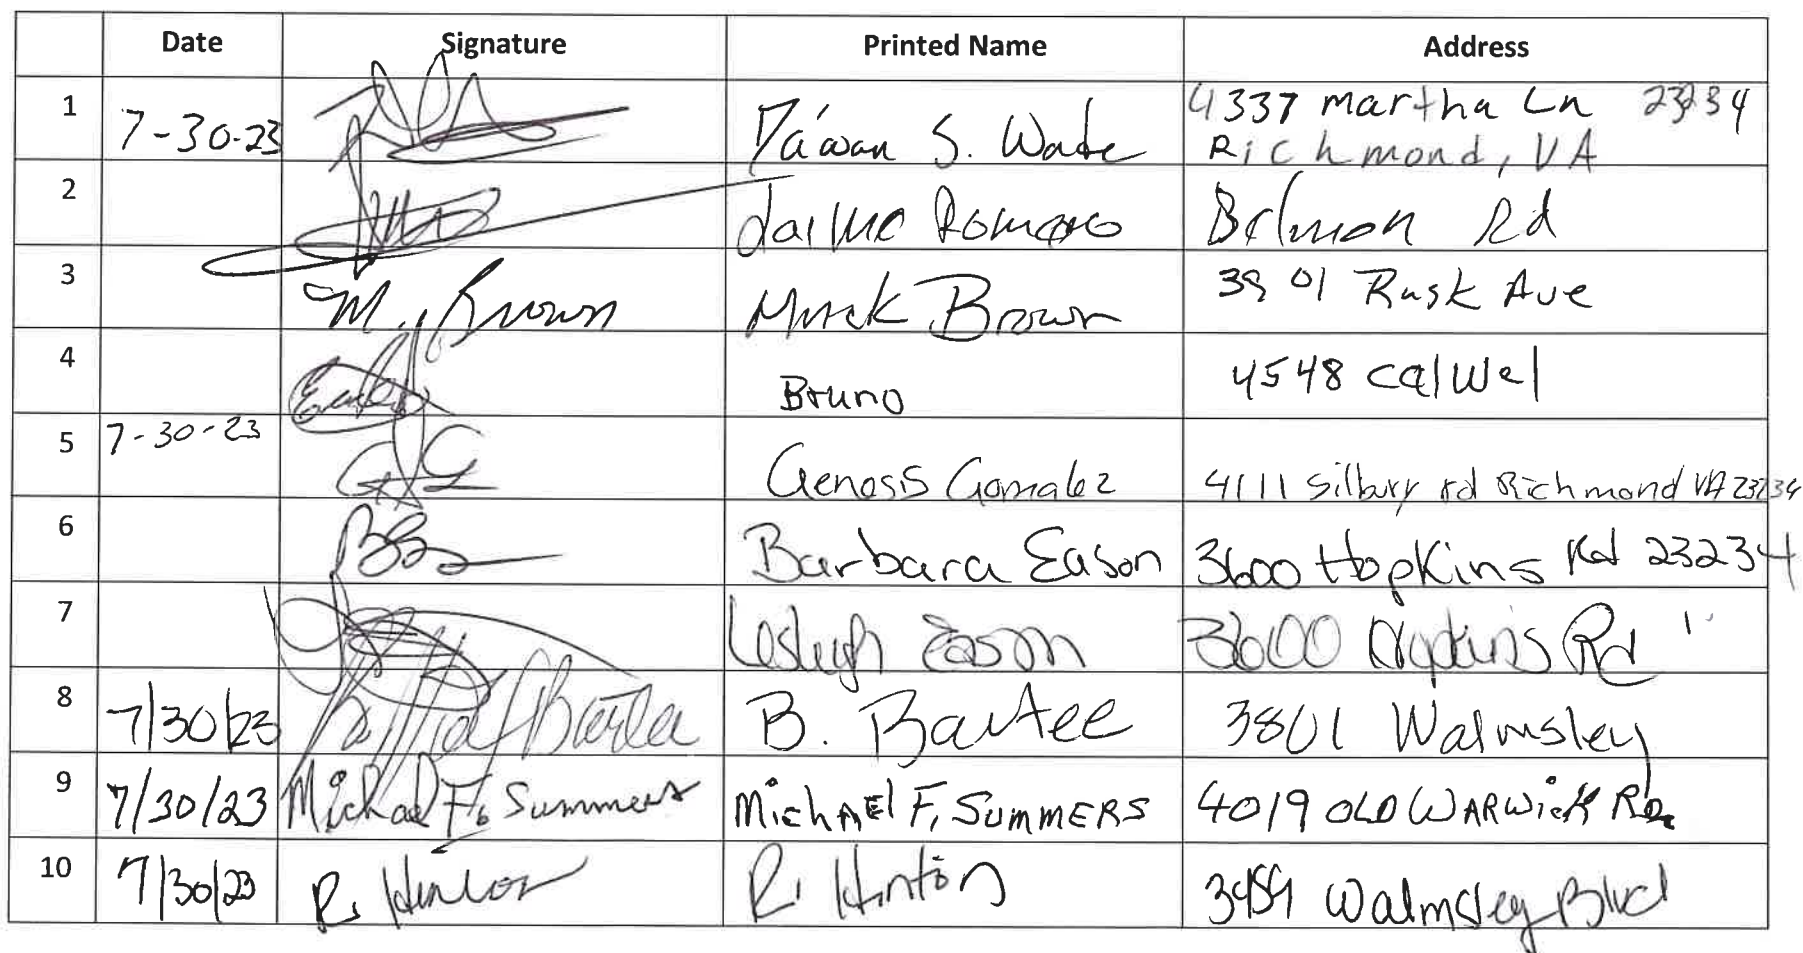 Date Signature Printed Name Address
1 7-30-23 Da'wan S. Wade 4337 Martha Ln 23234
Richmond, VA
2 Jaime Romero Belmon Rd
3 M. Brown Mack Brown 3901 Rusk Ave
4 Bruno 4548 Calwel
5 7-30-23 GG Genesis Gomalez 4111 Silbury rd Richmond VA 23234
6 Barbara Eason 3600 Hopkins Rd 23234
7 Lesleigh Eason 3600 Hopkins Rd "
8 7/30/23 B. Bartee 3801 Walmsley
9 7/30/23 Michael F. Summers Michael F. Summers 4019 Old Warwick Rd.
10 7/30/23 R. Hinton R. Hinton Walmsley Blvd